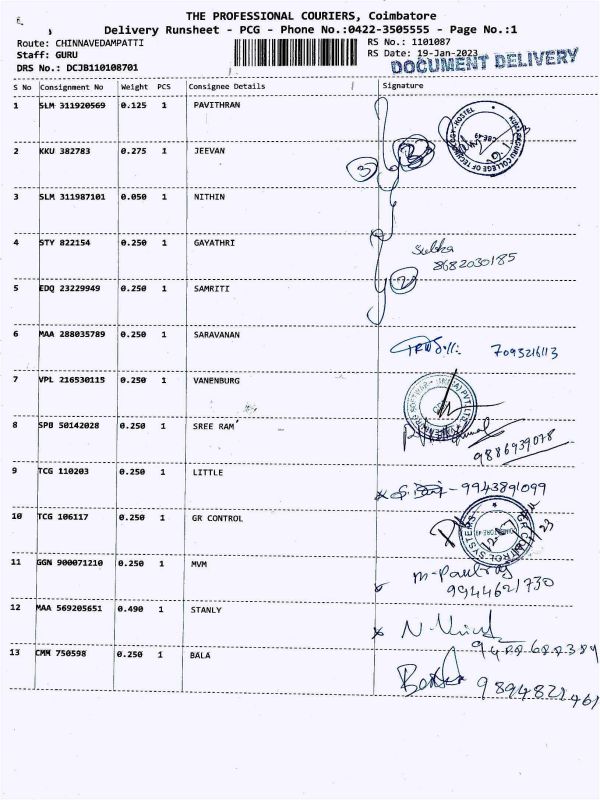 THE PROFESSIONAL COURIERS, Coimbatore
Delivery Runsheet - PCG - Phone No.:0422-3505555 - Page No.:1
Route: CHINNAVEDAMPATTI
RS No.: 1101087
Staff: GURU
RS Date: 19-Jan-2023
DRS No.: DCJB110108701
DOCUMENT DELIVERY
S No Consignment No Weight PCS Consignee Details Signature
1 SLM 311920569 0.125 1 PAVITHRAN
2 KKU 382783 0.275 1 JEEVAN
3
3 SLM 311987101 0.050 1 NITHIN
4 STY 822154 0.250 1 GAYATHRI
8682030185
5 EDQ 23229949 0.250 1 SAMRITI
2
6 MAA 288035789 0.250 1 SARAVANAN
7093216113
7 VPL 216530115 0.250 1 VANENBURG
8 SPB 50142028 0.250 1 SREE RAM
9886939078
9 TCG 110203 0.250 1 LITTLE
9943891099
10 TCG 106117 0.250 1 GR CONTROL
GR CONTROL SYSTEMS
11 GGN 900071210 0.250 1 MVM
9944621730
12 MAA 569205651 0.490 1 STANLY
13 CMM 750598 0.250 1 BALA